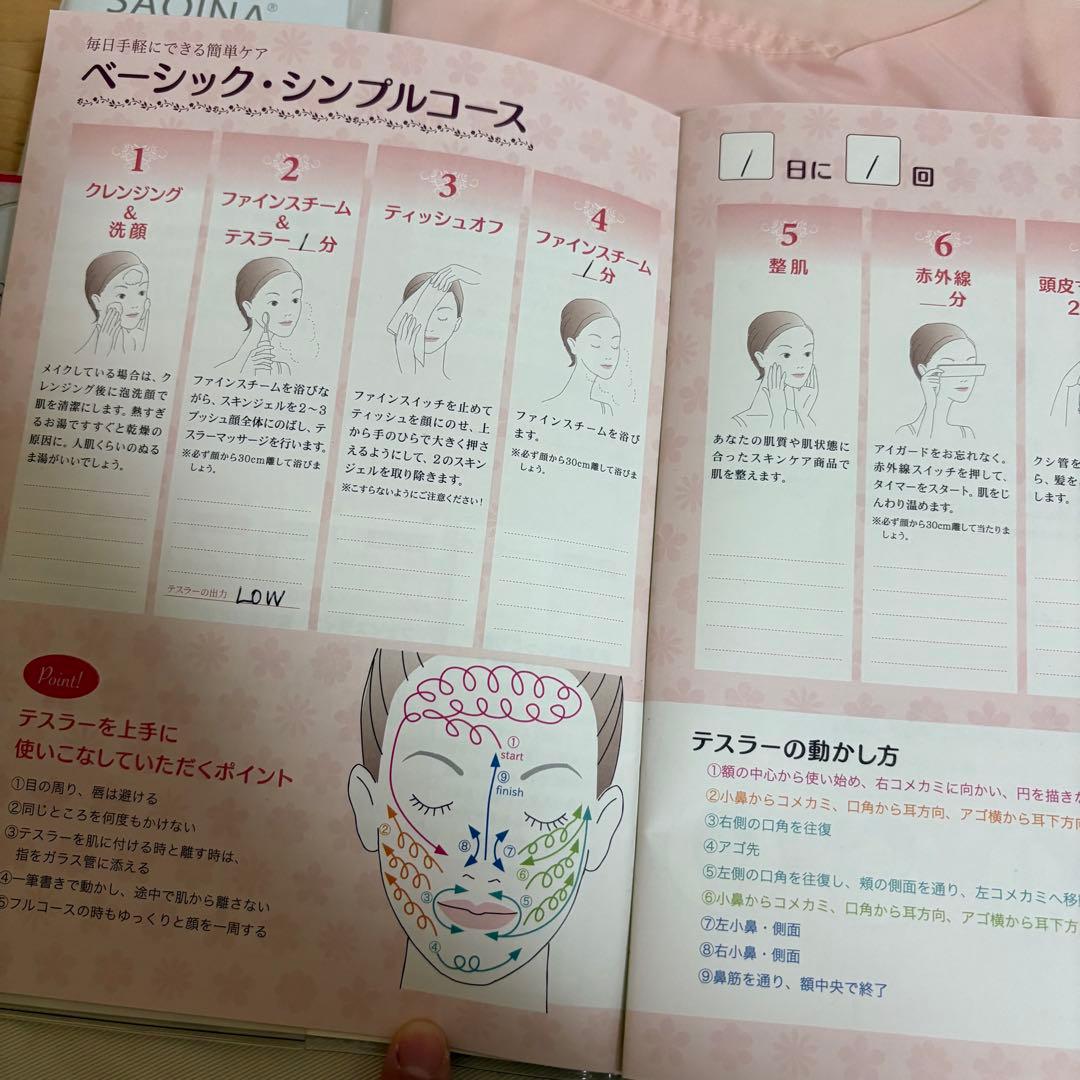 SAQINA®
毎日手軽にできる簡単ケア
ベーシック・シンプルコース
1
クレンジング
&
洗顔
メイクしている場合は、ク
レンジング後に泡洗顔で
肌を清潔にします。熱すぎ
るお湯ですすぐと乾燥の
原因に。人肌くらいのぬる
ま湯がいいでしょう。
2
ファインスチーム
&
テスラー1分
ファインスチームを浴びな
がら、スキンジェルを2～3
プッシュ顔全体にのばし、テ
スラーマッサージを行います。
※必ず顔から30cm離して浴びま
しょう。
テスラーの出力 LOW
3
ティッシュオフ
ファインスイッチを止めて
ティッシュを顔にのせ、上
から手のひらで大きく押さ
えるようにして、2のスキン
ジェルを取り除きます。
※こすらないようにご注意ください!
4
ファインスチーム
1分
ファインスチームを浴び
ます。
※必ず顔から30cm離して浴びま
しょう。
1日に1回
5
整肌
あなたの肌質や肌状態に
合ったスキンケア商品で
肌を整えます。
6
赤外線
__分
アイガードをお忘れなく。
赤外線スイッチを押して、
タイマーをスタート。肌をじ
んわり温めます。
※必ず顔から30cm離して当たりま
しょう。
頭皮
2
クシ管を
ら、髪を
します。
Point!
テスラーを上手に
使いこなしていただくポイント
①目の周り、唇は避ける
②同じところを何度もかけない
③テスラーを肌に付ける時と離す時は、
指をガラス管に添える
④一筆書きで動かし、途中で肌から離さない
⑤フルコースの時もゆっくりと顔を一周する
①
start
⑨
finish
②
⑧
⑦
⑥
③
⑤
④
テスラーの動かし方
①額の中心から使い始め、右コメカミに向かい、円を描き
②小鼻からコメカミ、口角から耳方向、アゴ横から耳下方向
③右側の口角を往復
④アゴ先
⑤左側の口角を往復し、頬の側面を通り、左コメカミへ移
⑥小鼻からコメカミ、口角から耳方向、アゴ横から耳下方
⑦左小鼻・側面
⑧右小鼻・側面
⑨鼻筋を通り、額中央で終了